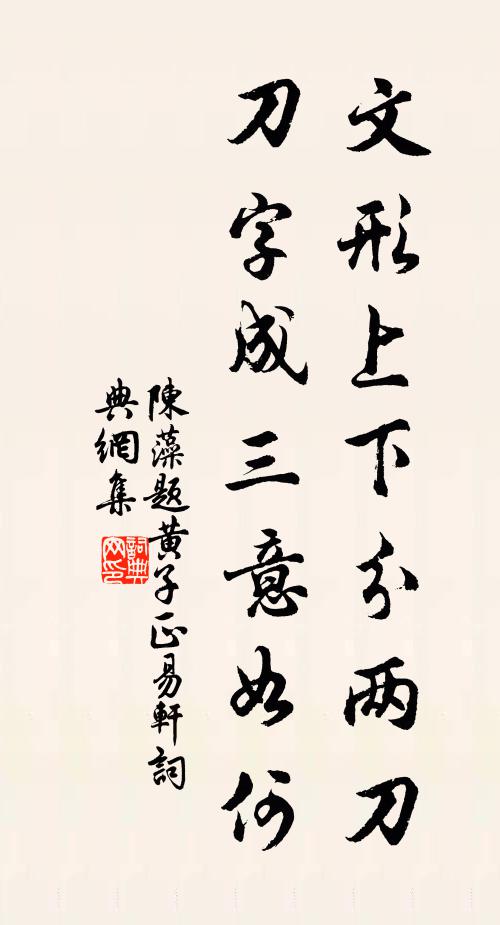 文形上下分两刀
刀字成三意如何
陳藻題黄子正易軒詞
典網集
詞典
网印